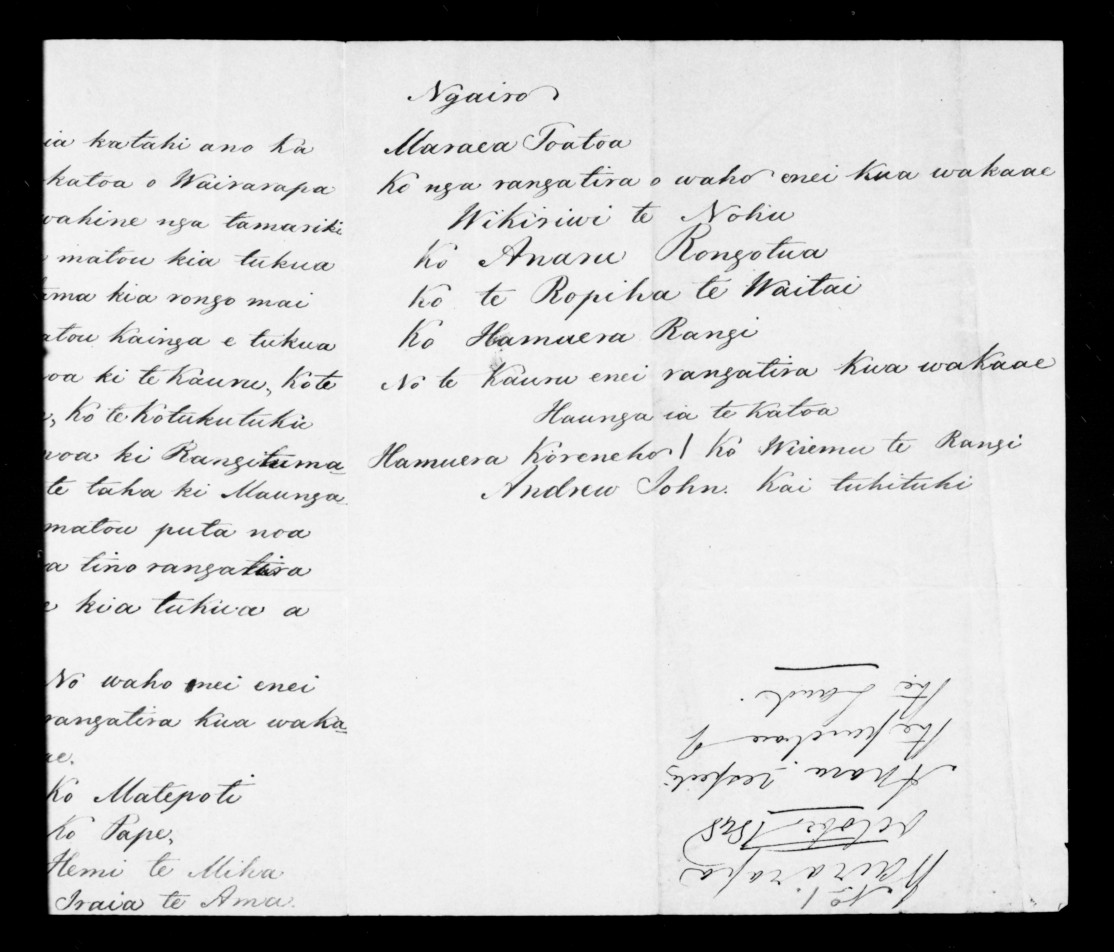 ia katahi ano ka
katoa o Wairarapa
wahine nga tamariki
matou kia tukua
ma kia rongo mai
atou kainga e tukua
oa ki te kauru, Ko te
, Ko te kotukutuku
noa ki Rangituma-
te taha ki Maunga
matou puta noa
a tino rangatira
e kia tukua a
No waho mei enei
rangatira kua waka-
ae.
Ko Matepoti
Ko Pape,
Hemi te Miha
Iraia te Ama.
Ngairo
Maraea Toatoa
Ko nga rangatira o waho enei kua wakaae
Wikiriwi te Nohu
Ko Anaru Rongotua
Ko te Ropiha te Waitai
Ko Hamuera Rangi
No te Kauru enei rangatira kua wakaae
Haunga ia te katoa
Hamuera Koreneho / Ko Wiremu te Rangi
Andrew John. Kai tuhituhi
No 1.
Wairarapa
October 1848
respects
the purchase of
the Land.